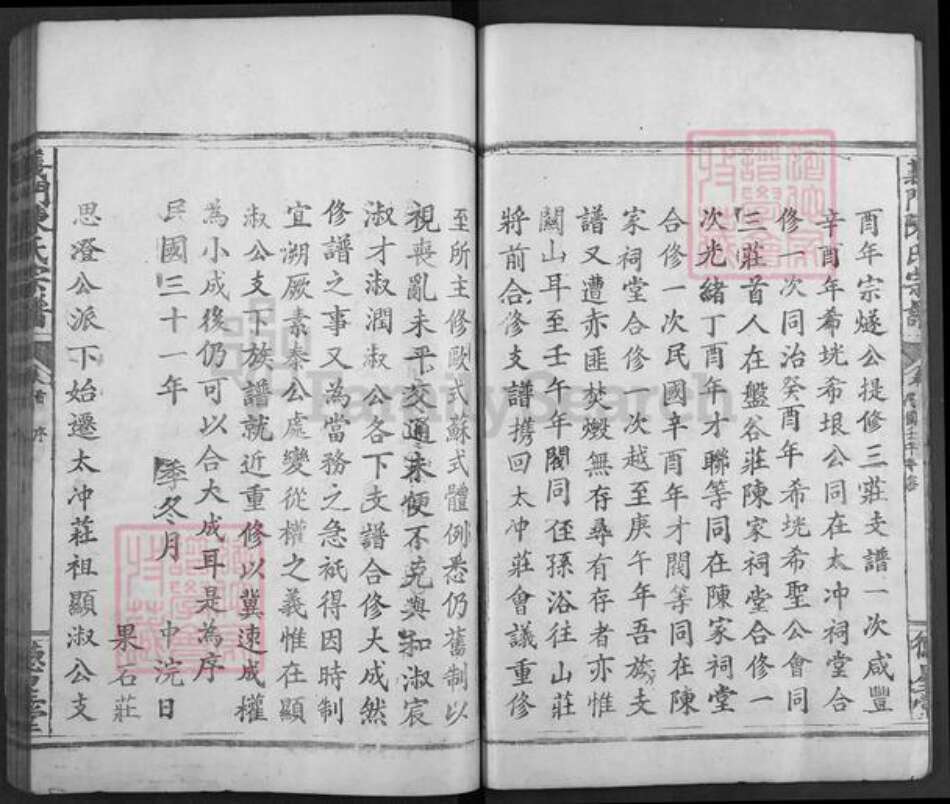 酉年宗燧公提修三莊支譜一次咸豐
辛酉年希垙希垠公同在太冲祠堂合
修一次同治癸酉年希垙希聖公會同
三莊首人在盤谷莊陳家祠堂合修一
次光緒丁酉年才聯等同在陳家祠堂
合修一次民國辛酉年才閱等同在陳
家祠堂合修一次越至庚午年吾族支
譜又遭赤匪焚燬無存尋有存者亦惟
闕山耳至壬午年閣同侄孫浴往山莊
將前合修支譜携回太冲莊會議重修
至所主修歐式蘇式體例悉仍舊制以
視喪亂未平交通未便不克與和淑宸
淑才淑潤淑公各下支譜合修大成然
修譜之事又為當務之急衹得因時制
宜溯厥素泰公處變從權之義惟在顯
淑公支下族譜就近重修以冀速成權
為小成後仍可以合大成耳是為序
民國三十一年 季冬月 中浣日
果石莊
思澄公派下始遷太冲莊祖顯淑公支
義門陳氏宗譜
卷首
序
義門陳氏宗譜
德星堂
FamilySearch